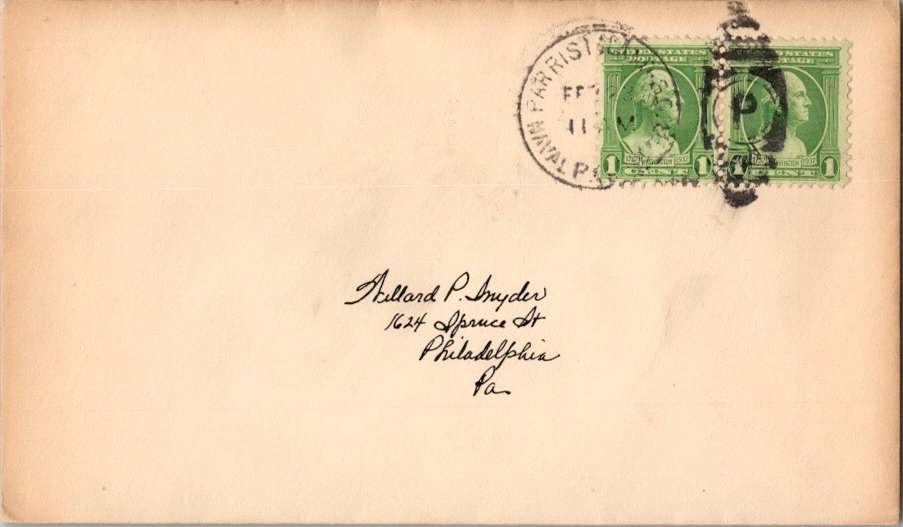 PARRIS ISLAND
NAVAL
FEB
11
UNITED STATES POSTAGE
1 WASHINGTON 1
CENT
P
UNITED STATES
POSTAGE
1 WASHINGTON 1932 1
CENT
Willard P. Snyder
1624 Spruce St
Philadelphia
Pa